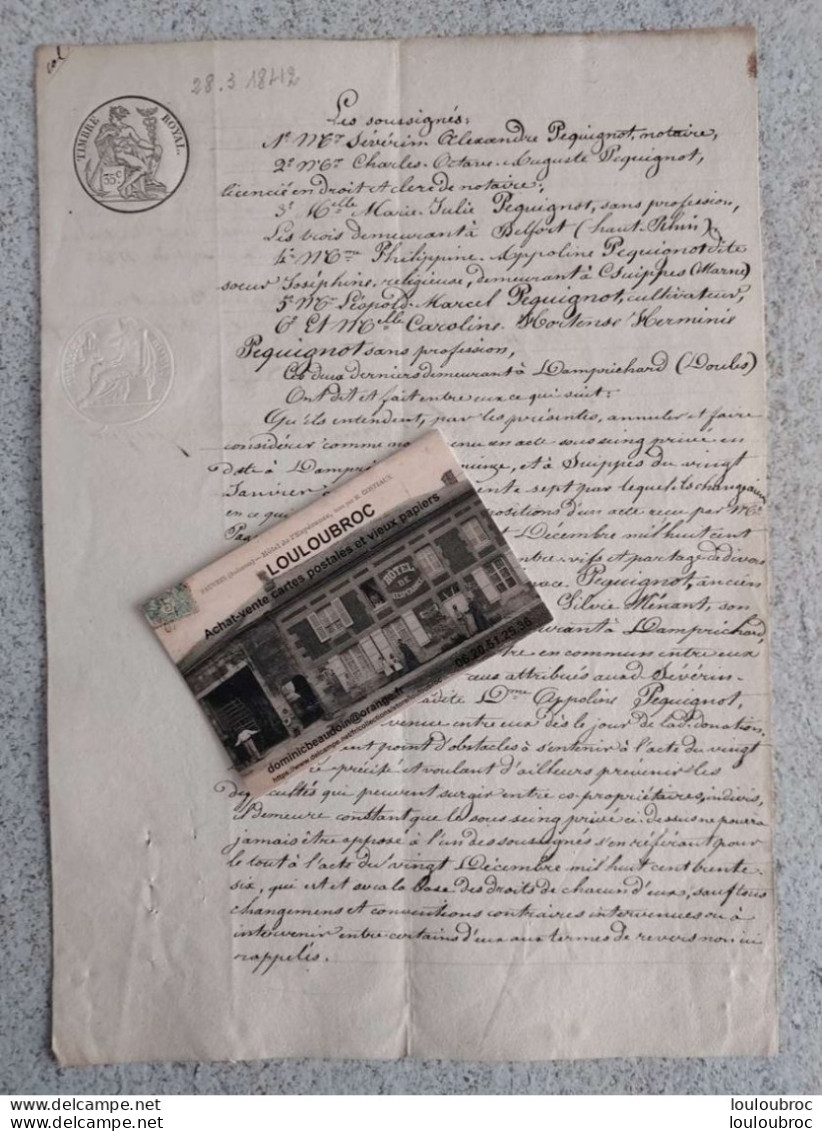 col
28.3 1842
TIMBRE ROYAL.
35c
Les soussignés:
1º Mr Sévérin Alexandre Pequignot, notaire,
2º Mr Charles-Octave-Auguste Pequignot,
licencié en droit et clerc de notaire;
3º Melle Marie-Julie Pequignot, sans profession,
Les trois demeurant à Belfort (haut-Rhin);
4º Mme Philippine-Appoline Pequignot dite
sœur Joséphine, religieuse, demeurant à Suippes (Marne)
5º Mr Léopold-Marcel Pequignot, cultivateur,
6º Et Melle Caroline-Hortense-Herminie
Pequignot sans profession,
Ces deux derniers demeurant à Damprichard (Doubs)
Ont dit et fait entre eux ce qui suit:
Qu'ils entendent, par les présentes, annuler et faire
considérer comme non enu un acte sous seing privé en
date à Dampri quinze, et à Suippes du vingt
Janvier ente sept par lequel ils changeaient
en ce qui ositions d'un acte reçu par Me
Décembre mil huit cent
entre-vifs et partage à divers
ace Pequignot, ancien
Silvie Ménant, son
urant à Damprichard,
tre en commun entre eux
aux attribués aud. Sévérin
adite Dme Appoline Pequignot,
venue entre eux dès le jour de lad. donation.
ent point d'obstacles à s'en tenir à l'acte du vingt
e précité et voulant d'ailleurs prévenir les
difficultés qui peuvent surgir entre co-propriétaires indivis,
Demeure constant que le sous seing privé ci-dessus ne pourra
jamais être opposé à l'un des soussignés s'en référant pour
le tout à l'acte du vingt Décembre mil huit cent trente-
six, qui est et sera la base des droits de chacun d'eux, sauf tous
changemens et conventions contraires intervenues ou à
intervenir entre certains d'eux aux termes de revers non ici
rappelés.
LOULOUBROC
Achat-vente cartes postales et vieux papiers
HÔTEL
DE
06.20.51.25.36
dominicbeaudoin@orange.fr
louloubroc
louloubroc
https://www.delcampe.net
louloubroc
louloubroc